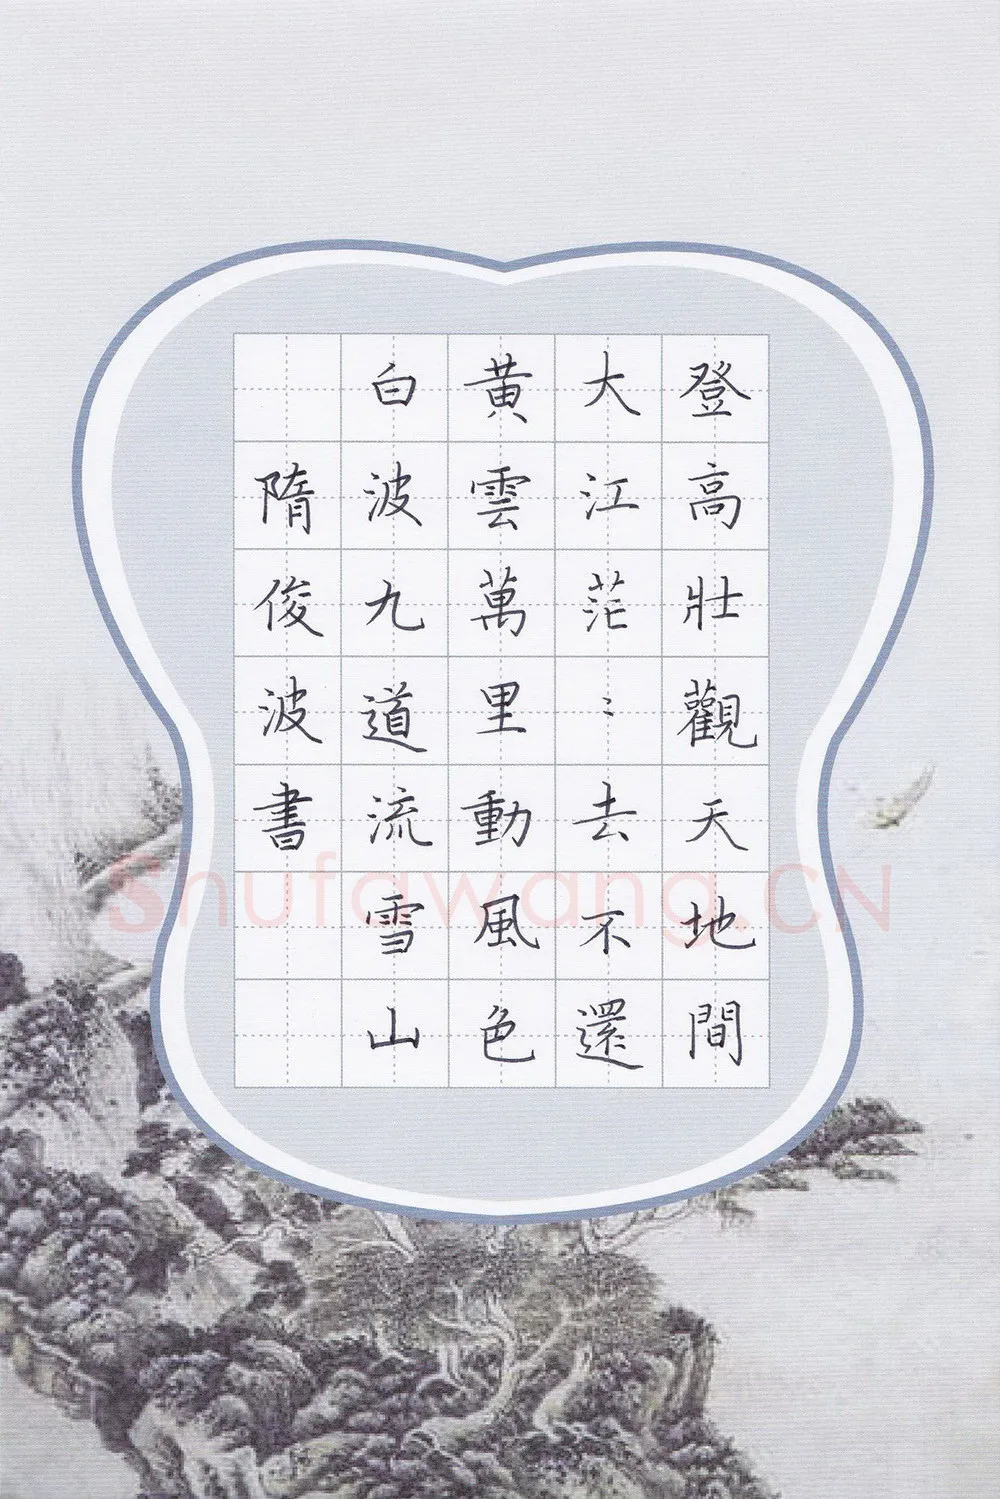 登高壯觀天地間
大江茫〻去不還
黃雲萬里動風色
白波九道流雪山
隋俊波書
Shufawang.CN